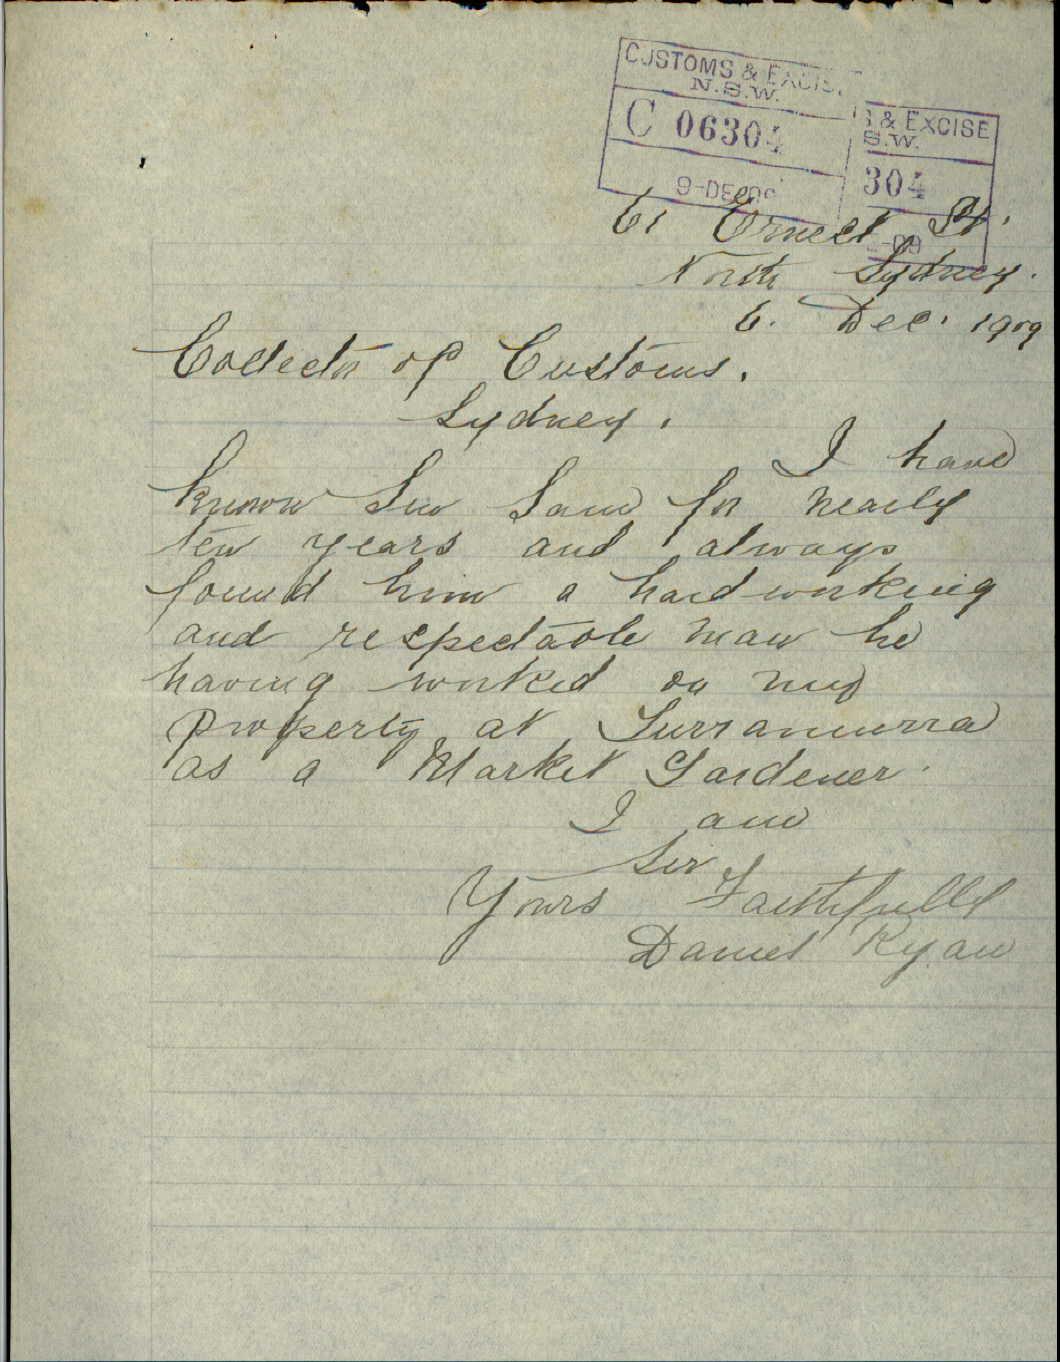 CUSTOMS & EXCIS
N.S.W.
C 06304
9-DE 09
S & EXCISE
S.W.
304
-09
61 Ernest St.
North Sydney.
6. Dec. 1909
Collector of Customs.
Sydney.
I have
known Sue Sam for nearly
ten years and always
found him a hard working
and respectable man he
having worked on my
property at Turramurra
as a Market Gardener.
I am
Sir
Yours Faithfully
Daniel Ryan